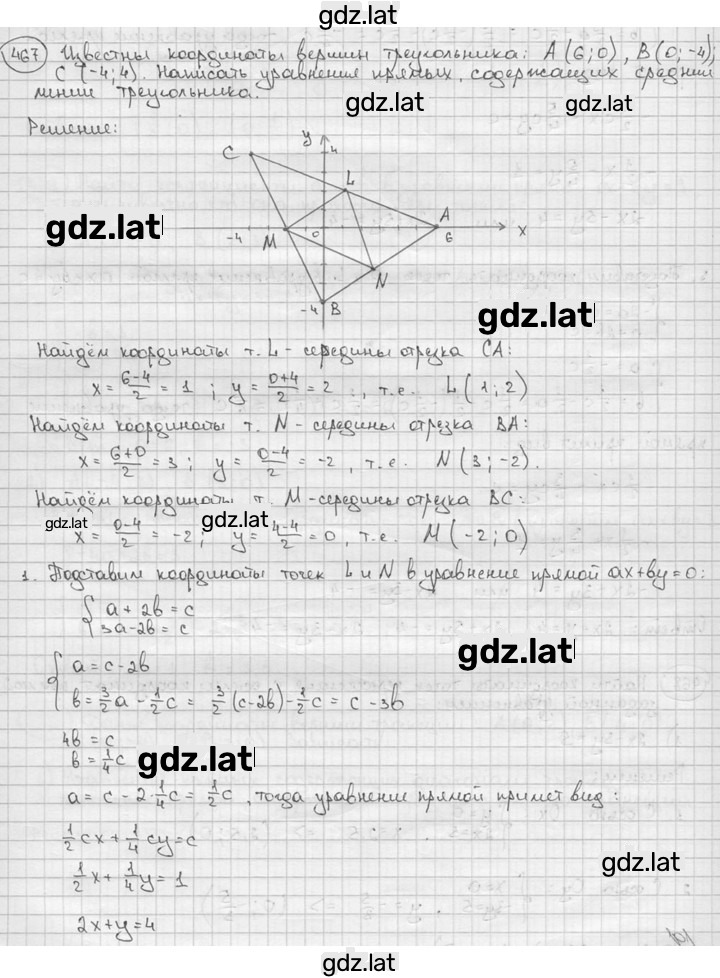 gdz.lat
467 Известны координаты вершин треугольника: A(6;0), B(0;-4),
C(-4;4). Написать уравнения прямых, содержащих средние
линии треугольника.
gdz.lat gdz.lat
Решение:
y
4
C
L
A
gdz.lat
-4 M 0 6 x
N
-4 B
gdz.lat
Найдём координаты т. L - середины отрезка CA:
x = \frac{6-4}{2} = 1 ; y = \frac{0+4}{2} = 2 , т.е. L(1;2)
Найдём координаты т. N - середины отрезка BA:
x = \frac{6+0}{2} = 3 ; y = \frac{0-4}{2} = -2, т.е. N(3;-2).
Найдём координаты т. M - середины отрезка BC:
gdz.lat gdz.lat
x = \frac{0-4}{2} = -2; y = \frac{4-4}{2} = 0, т.е. M(-2;0)
1. Подставим координаты точек L и N в уравнение прямой ax+by=0:
a + 2b = c
3a-2b = c
gdz.lat
a = c-2b
b = \frac{3}{2}a - \frac{1}{2}c = \frac{3}{2}(c-2b) - \frac{1}{2}c = c - 3b
4b = c
b = \frac{1}{4}c
gdz.lat
a = c - 2·\frac{1}{4}c = \frac{1}{2}c, тогда уравнение прямой примет вид:
\frac{1}{2}cx + \frac{1}{4}cy = c
gdz.lat
\frac{1}{2}x + \frac{1}{4}y = 1
2x+y=4
gdz.lat